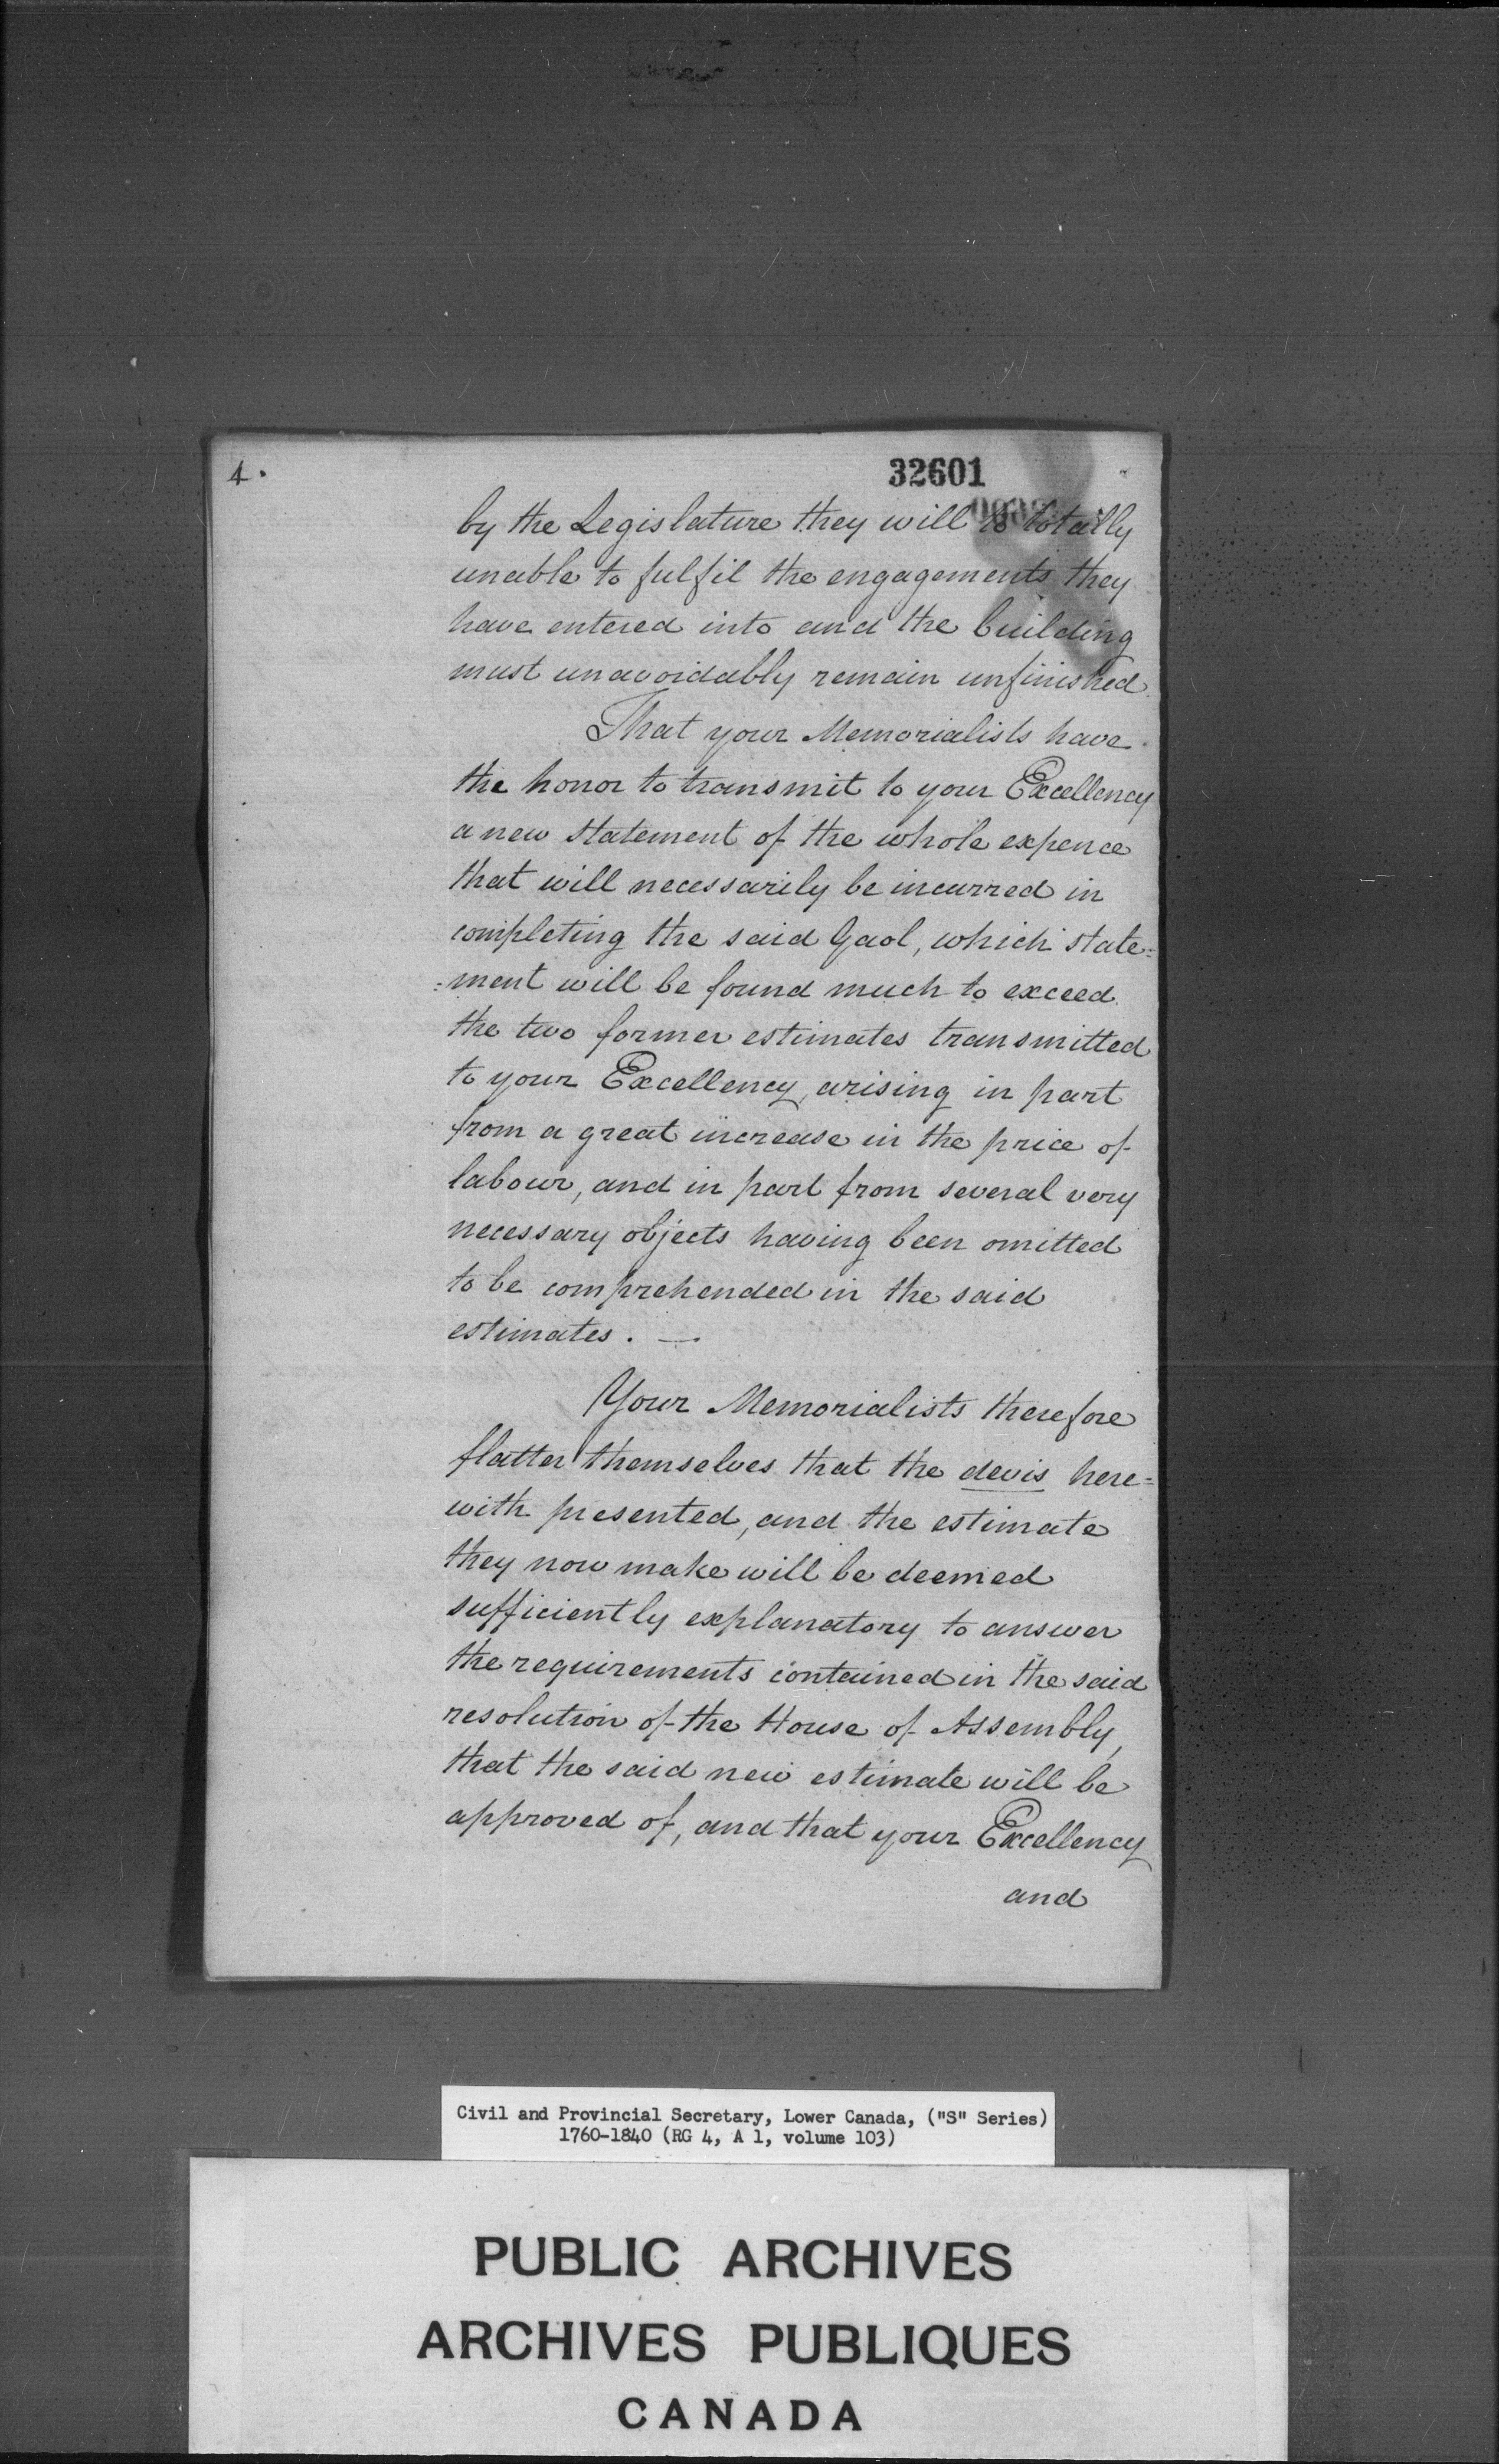 4.
32601
by the Legislature they will be totally
unable to fulfil the engagements they
have entered into and the building
must unavoidably remain unfinished.
That your Memorialists have
the honor to transmit to your Excellency
a new statement of the whole expence
that will necessarily be incurred in
completing the said Gaol, which state=
=ment will be found much to exceed
the two former estimates transmitted
to your Excellency, arising in part
from a great increase in the price of
labour, and in part from several very
necessary objects having been omitted
to be comprehended in the said
estimates. —
Your Memorialists therefore
flatter themselves that the devis here=
with presented, and the estimate
they now make will be deemed
sufficiently explanatory to answer
the requirements contained in the said
resolution of the House of Assembly,
that the said new estimate will be
approved of, and that your Excellency
and
Civil and Provincial Secretary, Lower Canada, ("S" Series)
1760-1840 (RG 4, A 1, volume 103)
PUBLIC ARCHIVES
ARCHIVES PUBLIQUES
CANADA